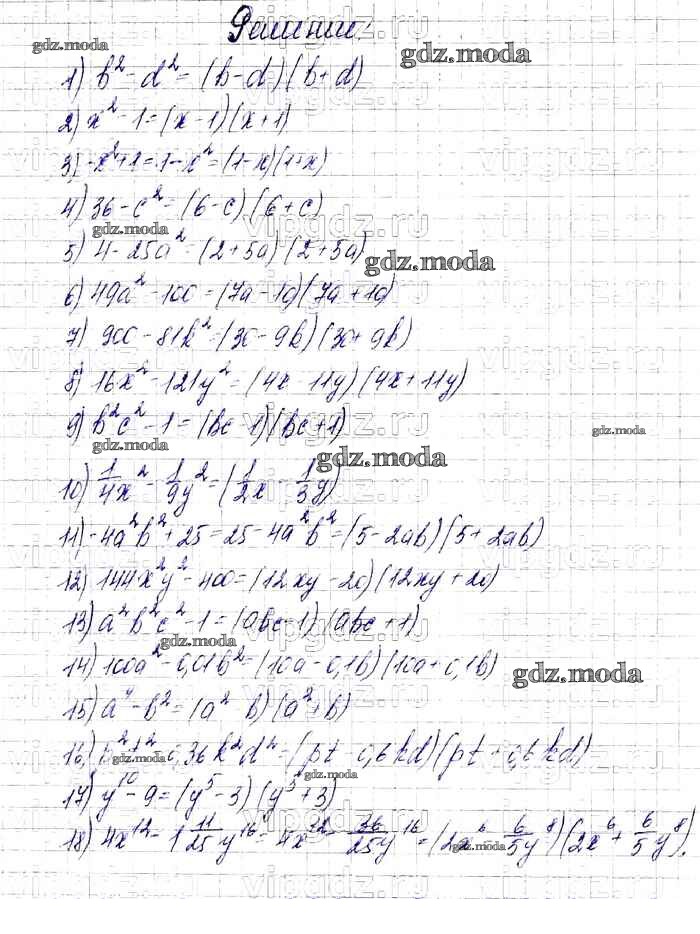 Решение:
gdz.moda
gdz.moda
1) b² - d² = (b-d)(b+d)
2) x² - 1 = (x-1)(x+1)
3) -x²+1 = 1-x² = (1-x)(1+x)
4) 36 - c² = (6-c)(6+c)
gdz.moda
5) 4 - 25a² = (2+5a)(2+5a)
gdz.moda
6) 49a² - 100 = (7a-10)(7a+10)
7) 900 - 81k² = (30-9k)(30+9k)
8) 16x² - 121y² = (4x-11y)(4x+11y)
9) b²c² - 1 = (bc-1)(bc+1)
gdz.moda
gdz.moda
gdz.moda
10) 1/4x² - 1/9y² = (1/2x - 1/3y)
11) -4a²b² + 25 = 25 - 4a²b² = (5-2ab)(5+2ab)
12) 144x²y² - 400 = (12xy-20)(12xy+20)
13) a²b²c² - 1 = (abc-1)(abc+1)
gdz.moda
14) 100a² - 0,01b² = (10a-0,1b)(10a+0,1b)
gdz.moda
15) a⁴ - b² = (a² b)(a²+b)
16) p²t² - 0,36k²d² = (pt-0,6kd)(pt+0,6kd)
gdz.moda
gdz.moda
17) y¹⁰ - 9 = (y⁵-3)(y⁵+3)
18) 4x¹² - 1 11/25 y¹⁶ = 4x¹² - 36/25 y¹⁶ = (2x⁶ - 6/5 y⁸)(2x⁶ + 6/5 y⁸).
gdz.moda
vipgdz.ru